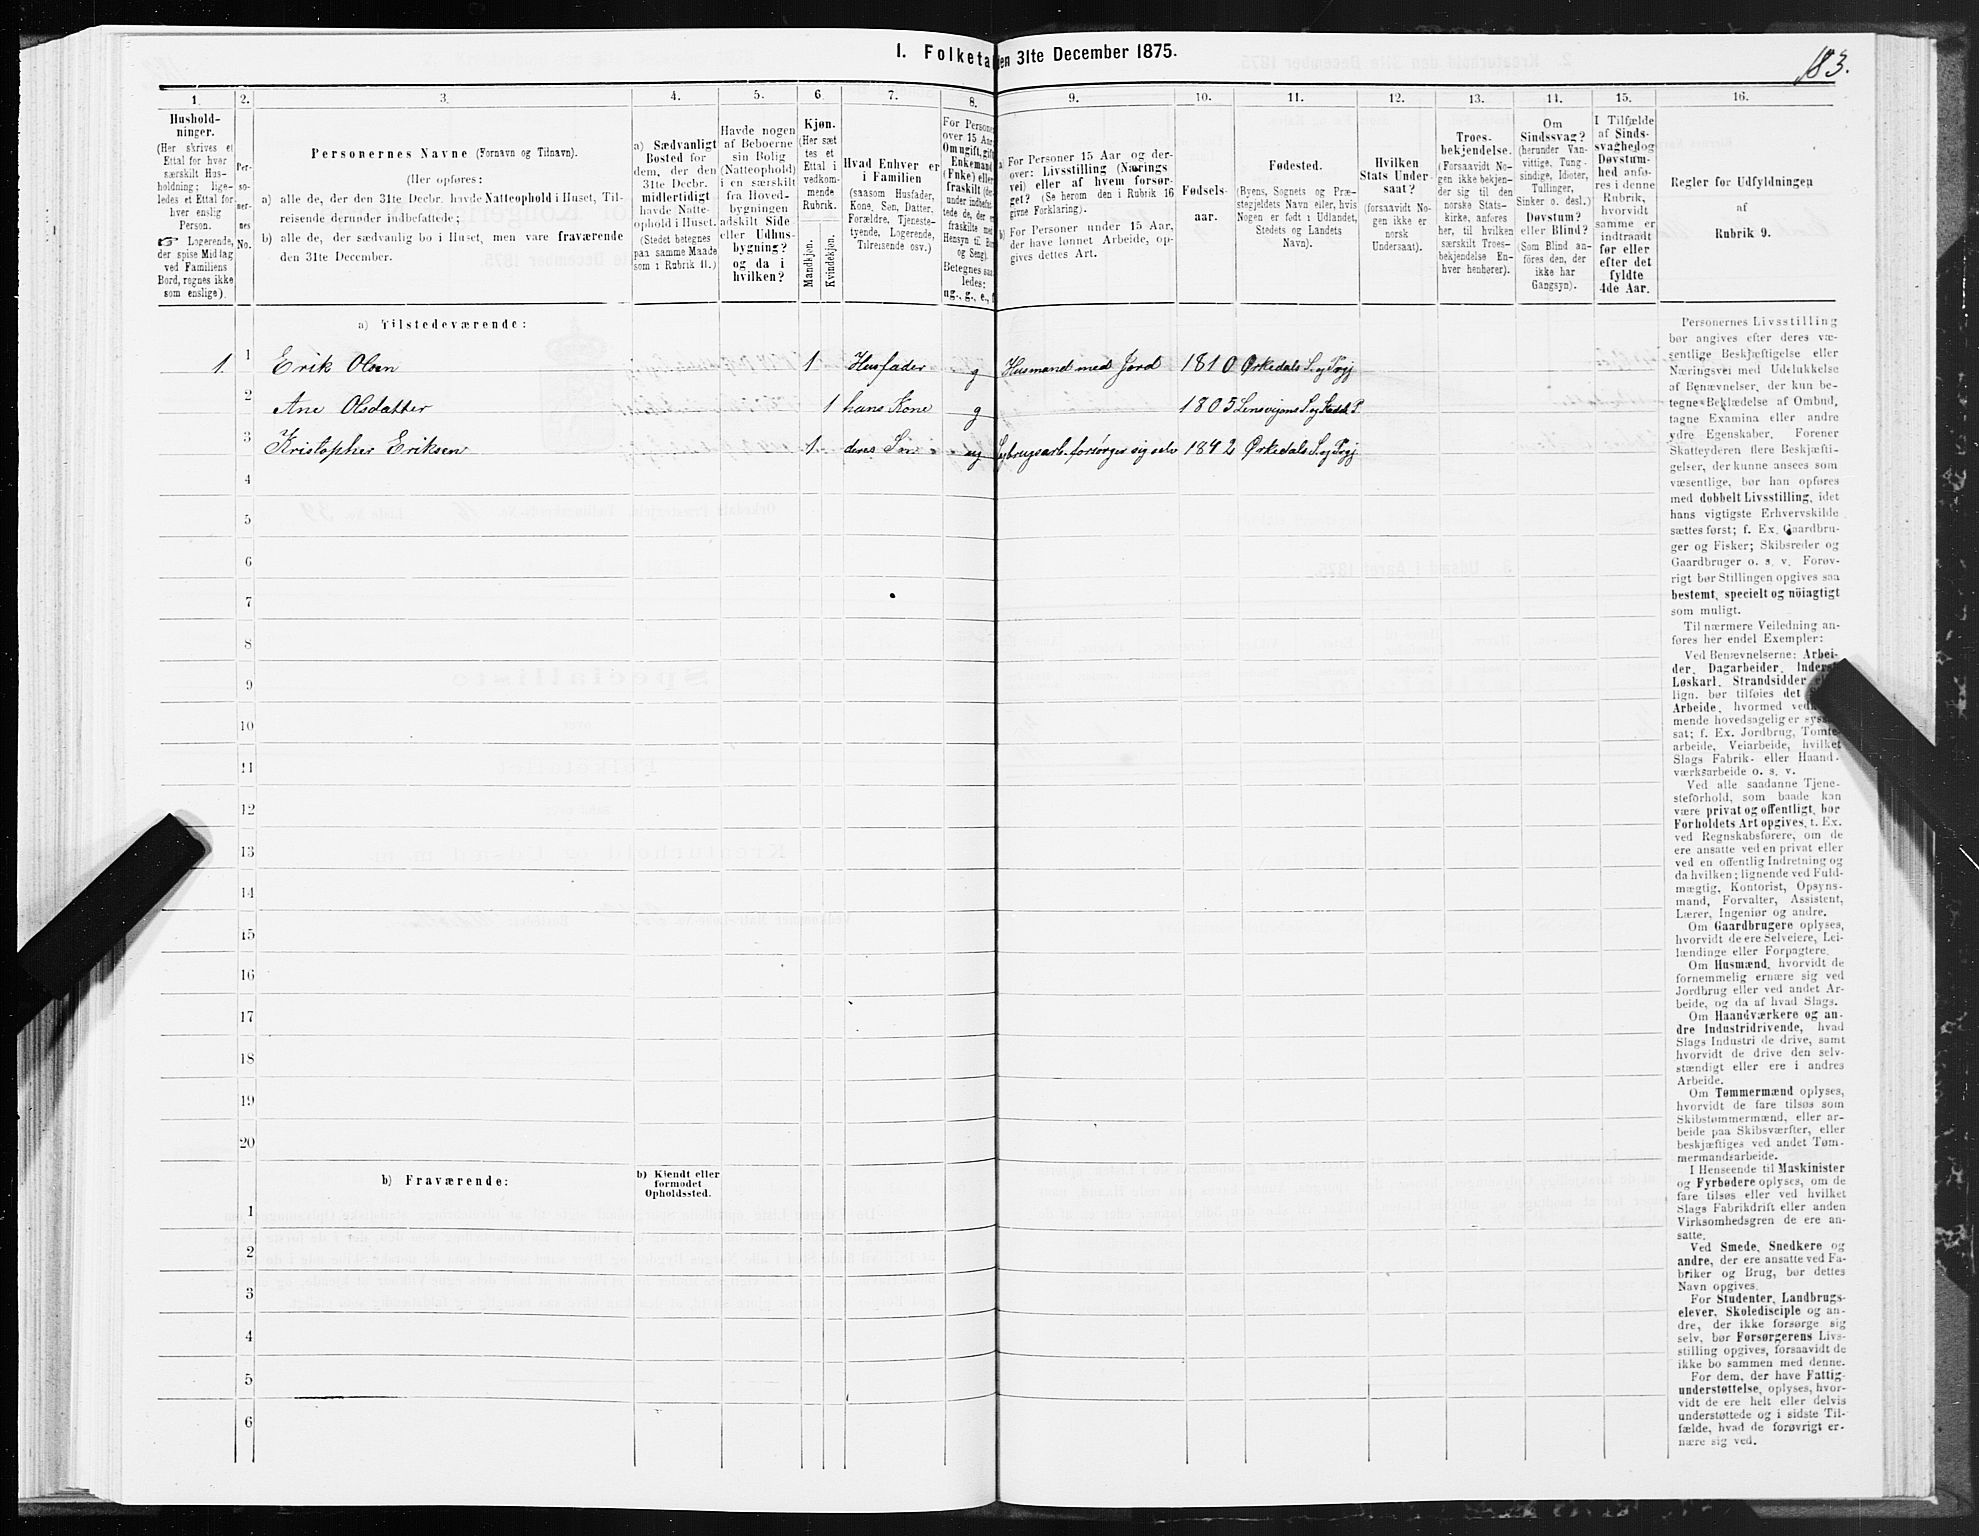 I. Folketa
den 31te December 1875.
183.
1.
2.
3.
4.
5.
6
7.
8.
9.
10.
11.
12.
13.
14.
15.
16.
Hushold-
ninger.
(Her skrives et
Ettal for hver
særskilt Hus-
holdning; lige-
ledes et Ettal for
hver enslig
Person.
☞ Logerende,
der spise Middag
ved Familiens
Bord, regnes ikke
som enslige).
Per-
so-
ner-
nes
No.
Personernes Navne (Fornavn og Tilnavn).
(Her opføres:
a) alle de, der den 31te Decbr. havde Natteophold i Huset, Til-
reisende derunder indbefattede;
b) alle de, der sædvanlig bo i Huset, men vare fraværende
den 31te December.
a) Sædvanligt
Bosted for
dem, der den
31te Decbr.
midlertidigt
havde Natte-
ophold i Huset.
(Stedet betegnes
paa samme Maade
som i Rubrik 11.)
Havde nogen
af Beboerne
sin Bolig
(Natteophold)
i en særskilt
fra Hoved-
bygningen
adskilt Side
eller Udhus-
bygning?
og da i
hvilken?
Kjøn.
(Her sæt
tes et
Ettal i
vedkom-
mende
Rubrik.
Mandkjøn.
Kvindekjøn.
Hvad Enhver er
i Familien
(saasom Husfader,
Kone, Søn, Datter,
Forældre, Tjeneste-
tyende, Logerende,
Tilreisende osv.)
For Persone
over 15 Aar
Om ugift, gift
Enkemand
(Enke) eller
fraskilt (der
under indbefat
tede de, der e
fraskilte med
Hensyn til Bor
og Seng).
Betegnes saa
ledes:
ug., g., e., f
a) For Personer 15 Aar og der-
over: Livsstilling (Nærings
vei) eller af hvem forsør-
get? (Se herom den i Rubrik 16
givne Forklaring).
b) For Personer under 15 Aar,
der have lønnet Arbeide, op-
gives dettes Art.
Fødsels-
aar.
Fødested.
(Byens, Sognets og Præ-
stegjeldets Navn eller, hvis
Nogen er født i Udlandet,
Stedets og Landets
Navn).
Hvilken
Stats Under-
saat?
(forsaavidt No-
gen ikke er
norsk
Undersaat).
Troes-
bekjendelse.
(Forsaavidt No-
gen ikke bekjen-
der sig til den
norske Stats-
kirke, anføres
her, til hvilken
særskilt Troes-
bekjendelse En-
hver henhører).
Om
Sindssvag?
(herunder Van-
vittige, Tung-
sindige, Idioter,
Tullinger,
Sinker o. desl.)
Døvstum?
eller Blind?
(Som Blind an-
föres den, der
ikke har
Gangsyn).
I Tilfælde
af Sinds-
svaghed og
Døvstum-
hed anfø-
res i denne
Rubrik,
hvorvidt
samme er
indtraadt
før eller
efter det
fyldte
4de Aar.
Regler for Udfyldningen
af
Rubrik 9.
a) Tilstedeværende:
1. 1 Erik Olsen 1 Husfader g Husmand med Jord 1810 Ørkedals S. og Prgj
2 Ane Olsdatter 1 hans Kone g 1805 Lensvigens S. og Stadsb. P.
3 Kristopher Eriksen 1 deres Søn ug forsørger sig selv 1842 Ørkedals S. og Prgj
4
5
6
7
8
9
10
11
12
13
14
15
16
17
18
19
20
b) Fraværende:
b) Kjendt eller
formodet
Opholdssted.
1
2
3
4
5
6
Personernes Livsstilling
bør angives efter deres væ-
sentlige Beskjæftigelse eller
Næringsvei med Udelukkelse
af Benævnelser, der kun be-
tegne Beklædelse af Ombud,
tagne Examina eller andre
ydre Egenskaber. Forener
Skatteyderen flere Beskjæfti-
gelser, der kunne ansees som
væsentlige, bør han opføres
med dobbelt Livsstilling, idet
hans vigtigste Erhvervskilde
sættes først; f. Ex. Gaardbru-
ger og Fisker; Skibsreder og
Gaardbruger o. s. v. Forøv-
rigt bør Stillingen opgives saa
bestemt, specielt og nöiagtigt
som muligt.
Til nærmere Veiledning an-
føres her endel Exempler:
Ved Benævnelserne: Arbei-
der, Dagarbeider, Inderst
Løskarl, Strandsidder
lign. bør tilføies det
Arbeide, hvormed ved
mende hovedsagelig er syss
sat; f. Ex. Jordbrug, Tomte-
arbeide, Veiarbeide, hvilket
Slags Fabrik- eller Haand-
værksarbeide o. s. v.
Ved alle saadanne Tjene-
steforhold, som baade kan
være privat og offentligt, bør
Forholdets Art opgives, t. Ex.
ved Regnskabsførere, om de
ere ansatte ved en privat eller
ved en offentlig Indretning og
da hvilken; lignende ved Fuld-
mægtig, Kontorist, Opsyns-
mand, Forvalter, Assistent,
Lærer, Ingeniør og andre.
Om Gaardbrugere oplyses,
hvorvidt de ere Selveiere, Lei-
lændinge eller Forpagtere.
Om Husmænd, hvorvidt de
fornemmelig ernære sig ved
Jordbrug eller ved andet Ar-
beide, og da af hvad Slags.
Om Haandværkere og an-
dre Industridrivende, hvad
Slags Industri de drive, samt
hvorvidt de drive den selv-
stændigt eller ere i andres
Arbeide.
Om Tømmermænd oplyses,
hvorvidt de fare tilsøs som
Skibstømmermænd, eller ar-
beide paa Skibsværfter, eller
beskjæftiges ved andet Tøm-
mermandsarbeide.
I Henseende til Maskinister
og Fyrbødere oplyses, om de
fare tilsøs eller ved hvilket
Slags Fabrikdrift eller anden
Virksomhedsgren de ere an-
satte.
Ved Smede, Snedkere og
andre, der ere ansatte ved Fa-
briker og Brug, bør dettes
Navn opgives.
For Studenter, Landbrugs-
elever, Skoledisciple og an-
dre, der ikke forsørge sig
selv, bør Forsørgerens Livs-
stilling opgives, forsaavidt de
ikke bo sammen med denne.
For dem, der have Fattig-
understøttelse, oplyses, hvor-
vidt de ere helt eller delvis
understøttede og i sidste Til-
fælde, hvad de forøvrigt er-
nære sig ved.